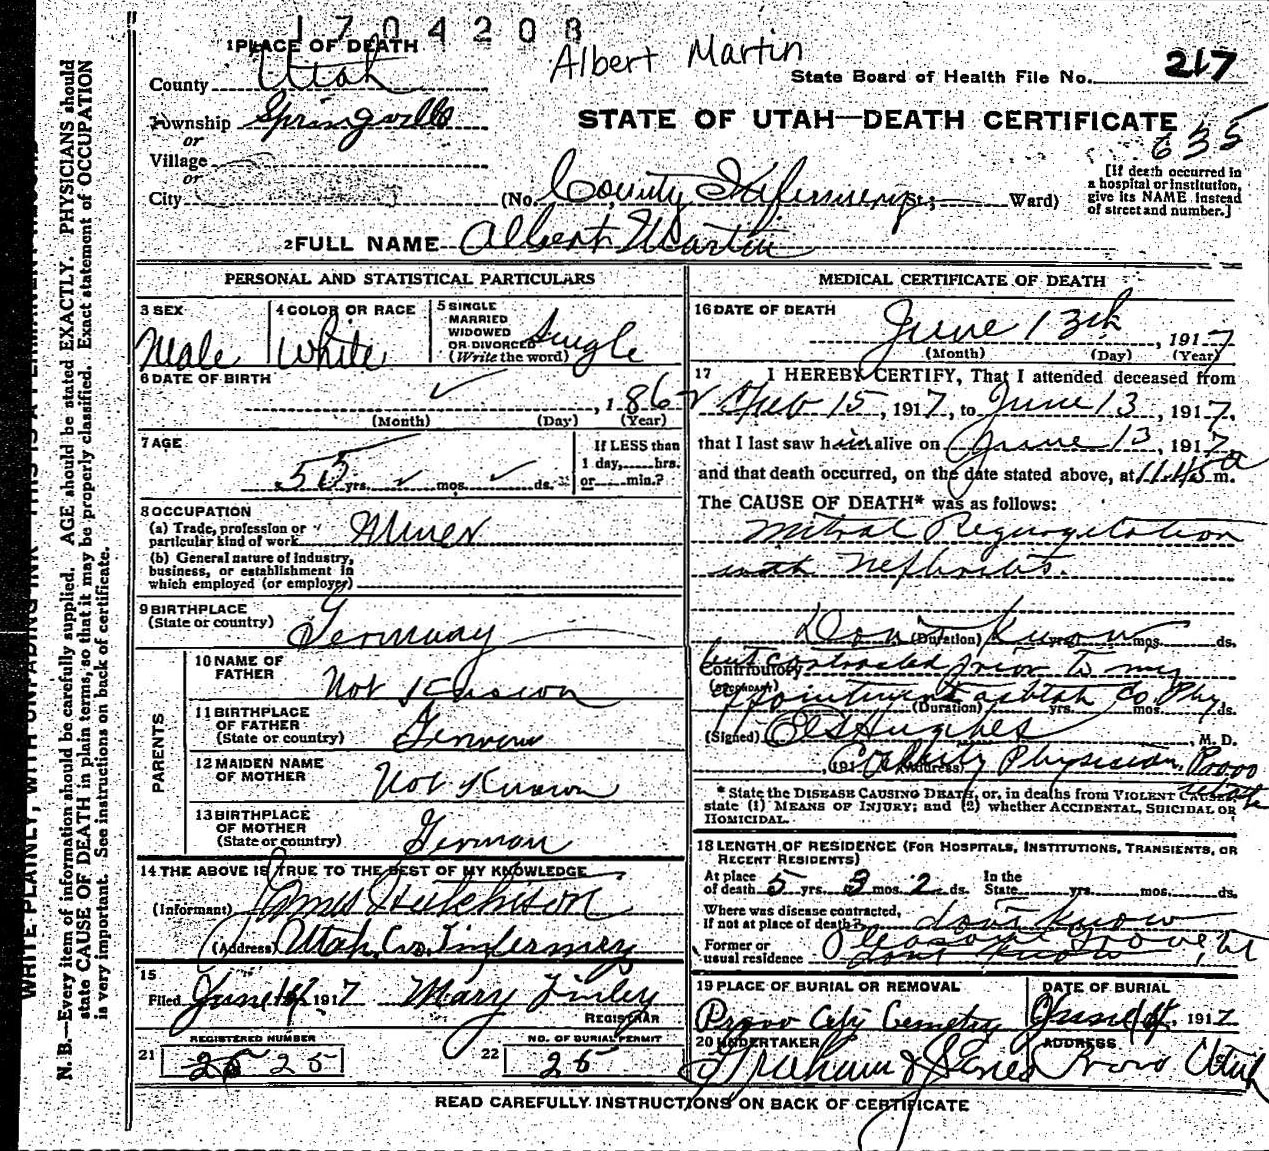 1704208
1 PLACE OF DEATH
Albert Martin
State Board of Health File No. 217
County Utah
Township Springville
or
Village
or
City
STATE OF UTAH—DEATH CERTIFICATE
635
(No. County Infirmery St.; Ward)
[If death occurred in
a hospital or institution,
give its NAME instead
of street and number.]
2 FULL NAME Albert Martin
PERSONAL AND STATISTICAL PARTICULARS
3 SEX
Male
4 COLOR OR RACE
White
5 SINGLE
MARRIED
WIDOWED
OR DIVORCED
(Write the word)
Single
6 DATE OF BIRTH
, 1862
(Month) (Day) (Year)
7 AGE
55 yrs. mos. ds.
If LESS than
1 day, hrs.
or min.?
8 OCCUPATION
(a) Trade, profession or
particular kind of work Miner
(b) General nature of industry,
business, or establishment in
which employed (or employer)
9 BIRTHPLACE
(State or country) Germany
PARENTS
10 NAME OF
FATHER Not Known
11 BIRTHPLACE
OF FATHER
(State or country) German
12 MAIDEN NAME
OF MOTHER Not Known
13 BIRTHPLACE
OF MOTHER
(State or country) German
14 THE ABOVE IS TRUE TO THE BEST OF MY KNOWLEDGE
(Informant) James Hutchison
(Address) Utah Co. Infermery
15
Filed June 14, 1917 Mary Finley
REGISTRAR
21 REGISTERED NUMBER
25 25
22 NO. OF BURIAL PERMIT
25
MEDICAL CERTIFICATE OF DEATH
16 DATE OF DEATH
June 13th, 1917
(Month) (Day) (Year)
17 I HEREBY CERTIFY, That I attended deceased from
Feb 15, 1917, to June 13, 1917,
that I last saw him alive on June 13, 1917
and that death occurred, on the date stated above, at 11.45 a m.
The CAUSE OF DEATH* was as follows:
Mitral Regurgitation
with Nephritis.
Dont Know
(Duration) yrs. mos. ds.
but contracted prior to my
Contributory
appointment as Utah Co. Phy
(Duration) yrs. mos. ds.
(Signed) Hughes, M. D.
, 191 (Address) County Physician, Provo
Utah
* State the DISEASE CAUSING DEATH, or, in deaths from VIOLENT CAUSES,
state (1) MEANS OF INJURY; and (2) whether ACCIDENTAL, SUICIDAL OR
HOMICIDAL.
18 LENGTH OF RESIDENCE (FOR HOSPITALS, INSTITUTIONS, TRANSIENTS, OR
RECENT RESIDENTS)
At place
of death 5 yrs. 3 mos. 2 ds.
In the
State yrs. mos. ds.
Where was disease contracted,
if not at place of death? dont know
Former or
usual residence Pleasant Grove, Ut
dont know
19 PLACE OF BURIAL OR REMOVAL
Provo City Cemetry
DATE OF BURIAL
June 14, 1917
20 UNDERTAKER
Graham & Jones
ADDRESS
Provo Utah
READ CAREFULLY INSTRUCTIONS ON BACK OF CERTIFICATE
WRITE PLAINLY, WITH UNFADING INK—THIS IS A PERMANENT RECORD
N. B.—Every item of information should be carefully supplied. AGE should be stated EXACTLY. PHYSICIANS should
state CAUSE OF DEATH in plain terms, so that it may be properly classified. Exact statement of OCCUPATION
is very important. See instructions on back of certificate.